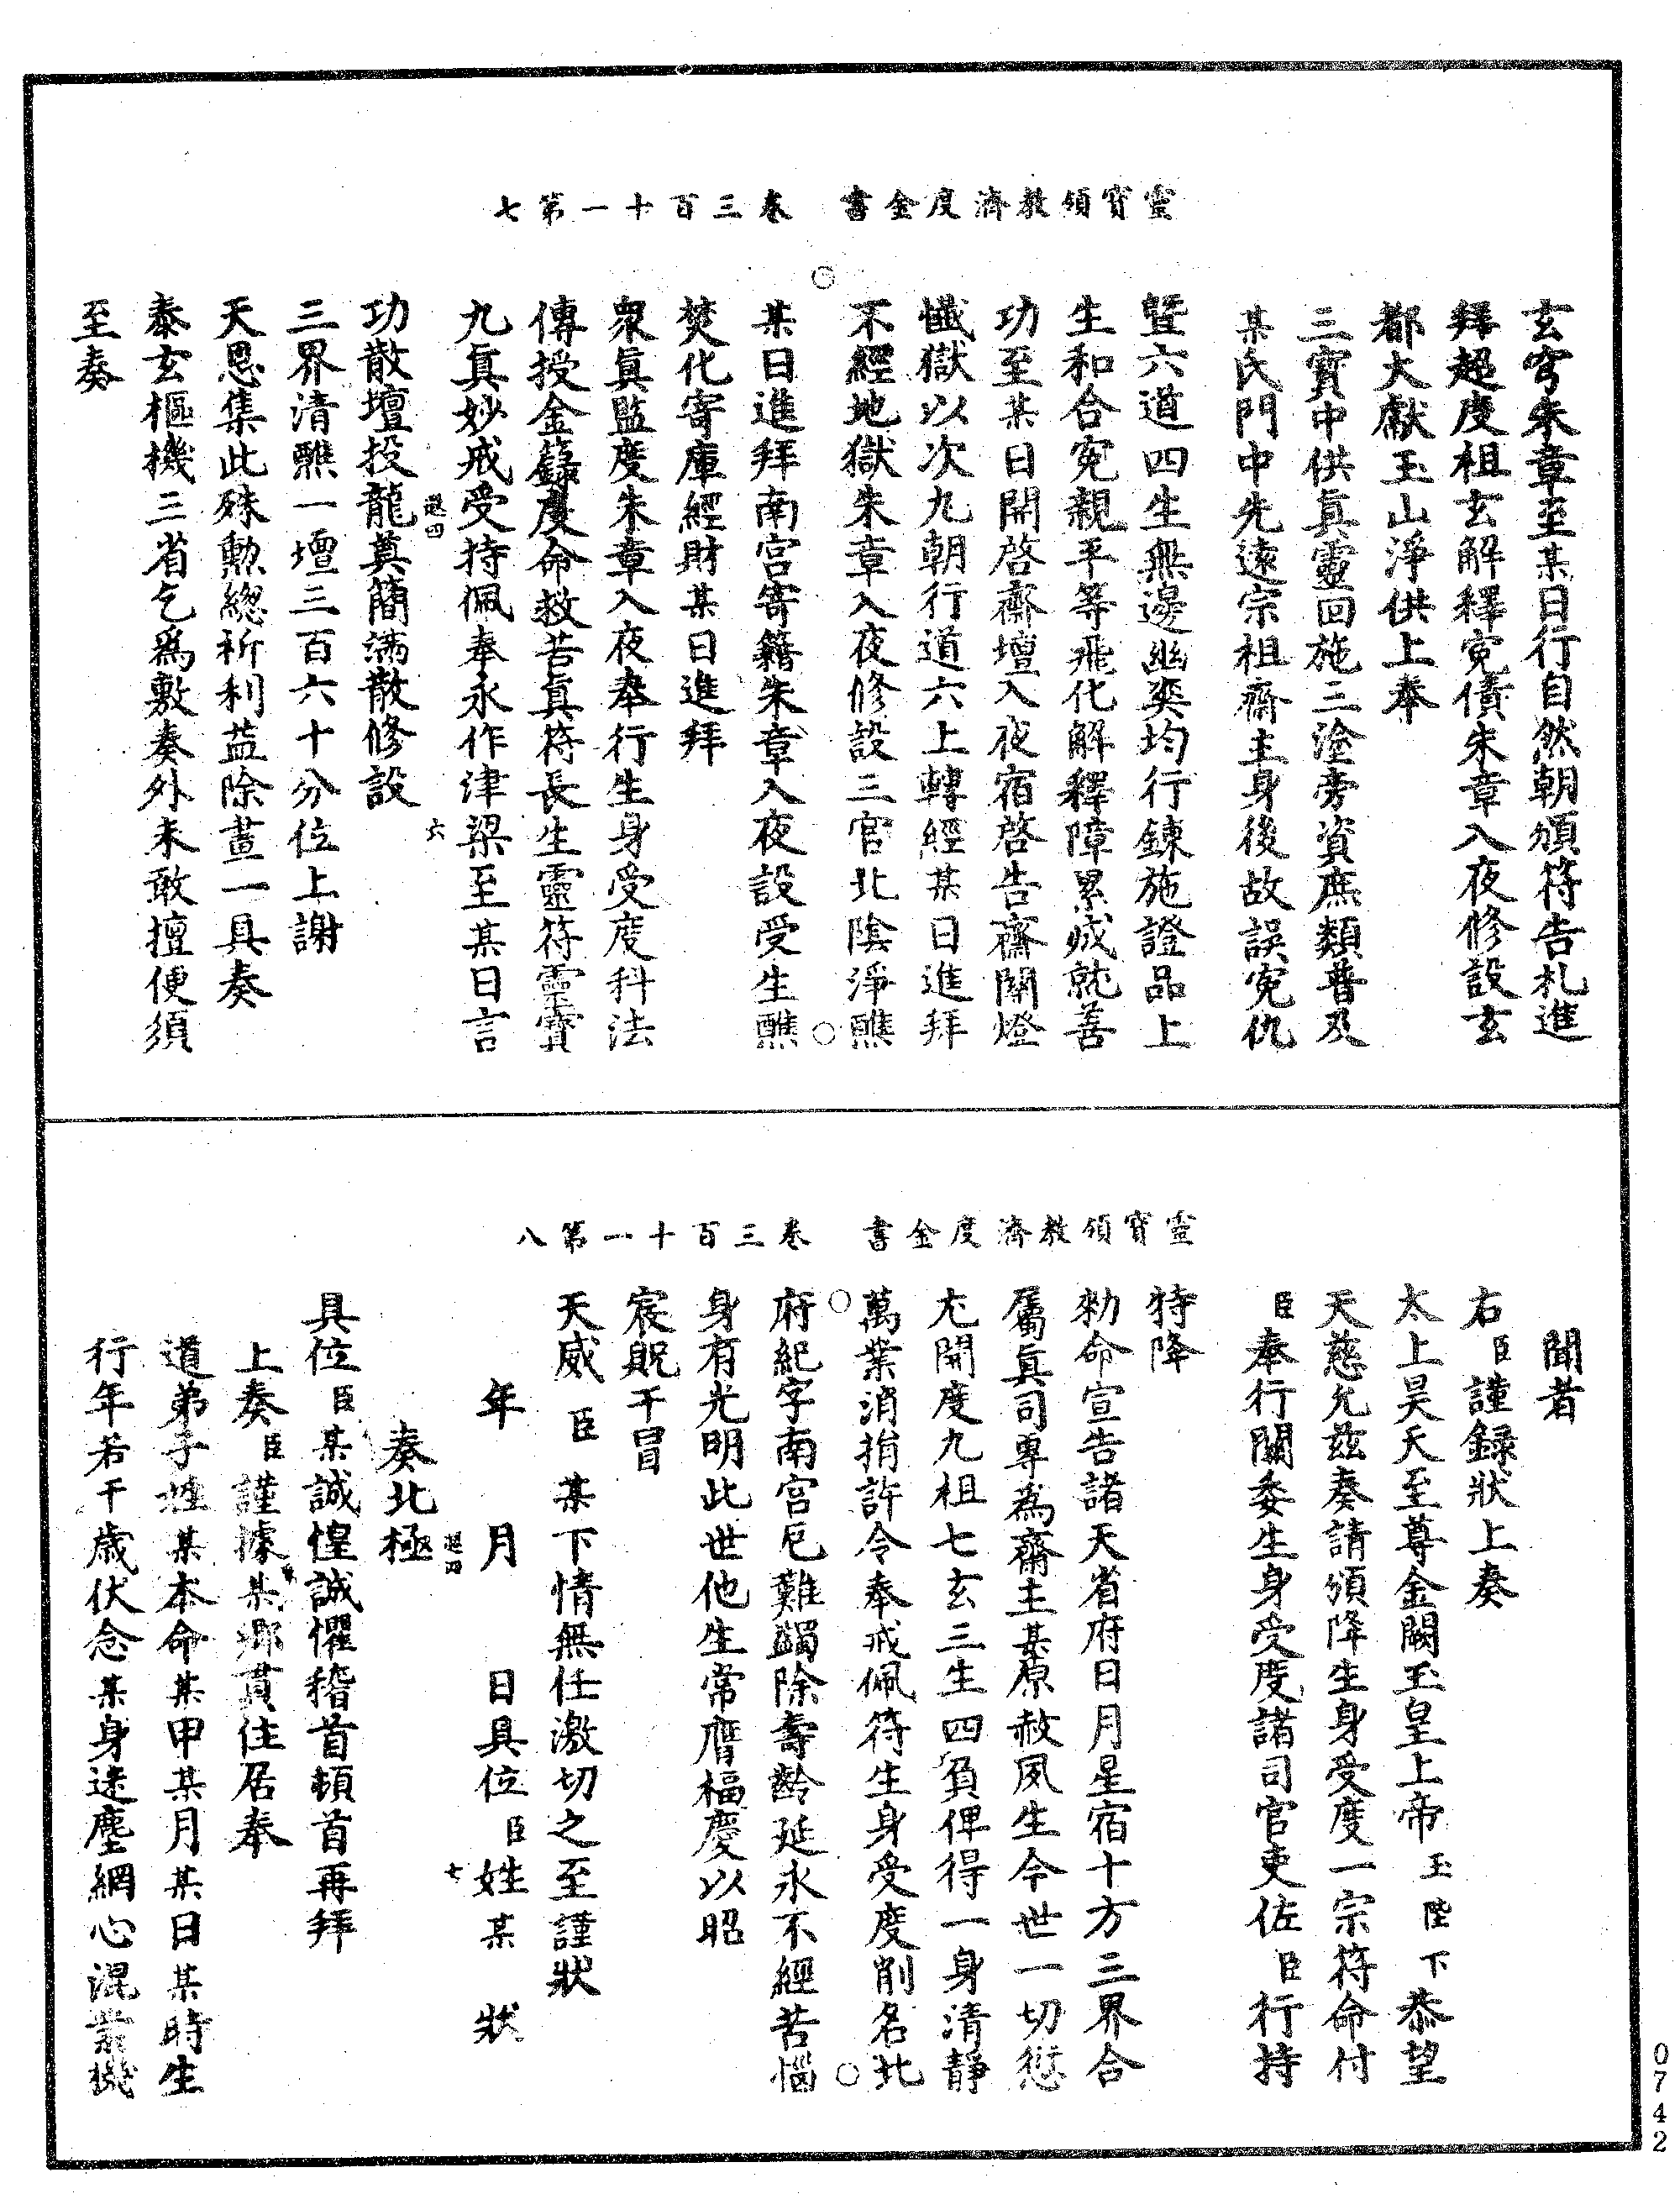 靈寶領教濟度金書　卷三百十一第七
玄穹朱章至某日行自然朝頒符告札進
拜超度祖玄解釋寃債朱章入夜修設玄
都大獻玉山淨供上奉
三寶中供眞靈回施三塗旁資庶類普及
某氏門中先遠宗祖齋主身後故誤寃仇
暨六道四生無邊幽爽均行鍊施證品上
生和合寃親平等飛化解釋障累成就善
功至某日開啓齋壇入夜宿啓告齋關燈
懺獄以次九朝行道六上轉經某日進拜
不經地獄朱章入夜修設三官北陰淨醮
某日進拜南宮寄籍朱章入夜設受生醮
焚化寄庫經財某日進拜
衆眞監度朱章入夜奉行生身受度科法
傳授金籙度命救苦眞符長生靈符靈寶
九眞妙戒受持佩奉永作津梁至某日言
六
功散壇投龍奠簡滿散修設
三界清醮一壇三百六十分位上謝
天恩集此殊勲總祈利益除畫一具奏
泰玄樞機三省乞爲敷奏外未敢擅便須
至奏
靈寶領教濟度金書　卷三百十一第八
聞者
右臣謹録狀上奏
太上昊天至尊金闕玉皇上帝玉陛下恭望
天慈允兹奏請頒降生身受度一宗符命付
臣奉行關委生身受度諸司官吏佐臣行持
特降
勑命宣告諸天省府日月星宿十方三界合
屬眞司専為齋主某原赦夙生今世一切愆
尤開度九祖七玄三生四負俾得一身清靜
萬業消捐許令奉戒佩符生身受度削名北
府紀字南宮厄難蠲除壽齡延永不經苦惱
身有光明此世他生常膺福慶以昭
宸貺干冒
天威臣某下情無任激切之至謹狀
年　月　日具位臣姓某　狀
七
奏北極
具位臣某誠惶誠懼稽首頓首再拜
上奏臣謹據某鄉貫住居奉
道弟子姓某本命某甲某月某日某時生
行年若干歲伏念某身迷塵網心混業機
0742